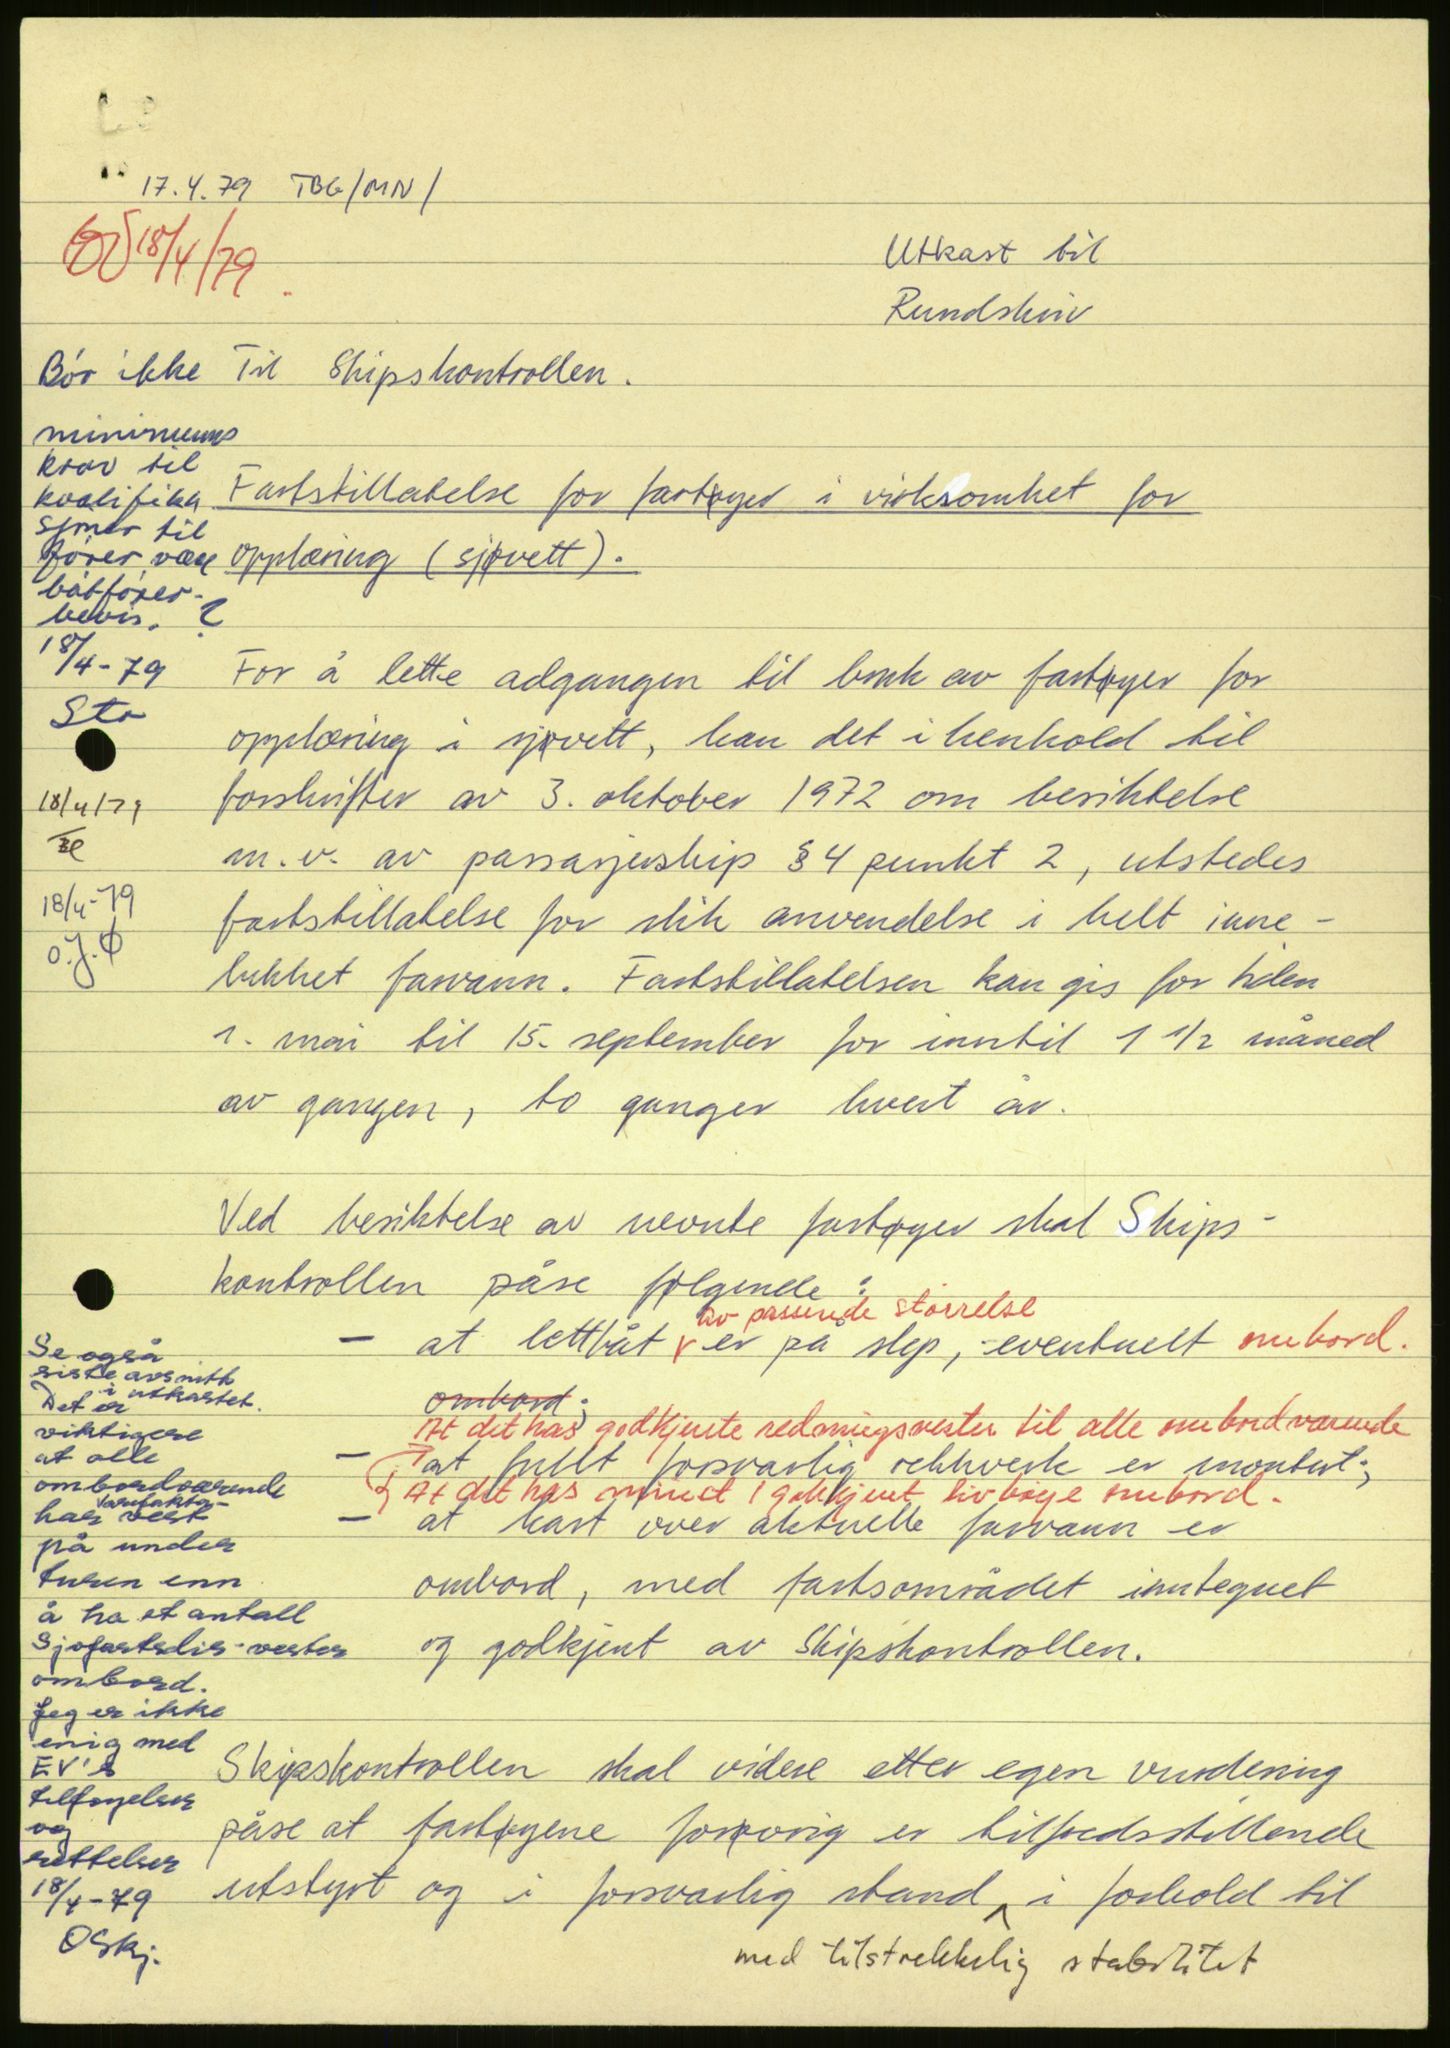 17.4.79 TBG/MN/
18/4/79.
Utkast til
Rundskriv
Til Skipskontrollen.
Bør ikke
minimums
krav til
kvalifika
sjoner til
fører være
båtfører-
bevis. ?
18/4-79
Sta
18/4/79
18/4-79
O.J.Ø
Fartstillatelse for fartøyer i virksomhet for
opplæring (sjøvett).
For å lette adgangen til bruk av fartøyer for
opplæring i sjøvett, kan det i henhold til
forskrifter av 3. oktober 1972 om besiktelse
m.v. av passasjerskip § 4 punkt 2, utstedes
fartstillatelse for slik anvendelse i helt inne-
lukket farvann. Fartstillatelsen kan gis for tiden
1. mai til 15. september for inntil 1 1/2 måned
av gangen, to ganger hvert år.
Ved besiktelse av nevnte fartøyer skal Skips-
kontrollen påse følgende:
av passende størrelse
- at lettbåt er på slep, eventuelt ombord.
ombord;
At det has godkjente redningsvester til alle ombordværende
- at fullt forsvarlig rekkverk er montert;
At det has minst 1 godkjent livbøye ombord.
- at kart over aktuelle farvann er
ombord, med fartsområdet inntegnet
og godkjent av Skipskontrollen.
Se også
siste avsnitt
i utkastet.
Det er
viktigere
at alle
ombordværende
har vest
på under
turen enn
å ha et antall
Sjøfartsdir-vester
ombord.
Jeg er ikke
enig med
EV's
tilføyelser
og
rettelser
18/4-79
OSkj.
Skipskontrollen skal videre etter egen vurdering
påse at fartøyene forøvrig er tilfredsstillende
utstyrt og i forsvarlig stand ^ i forhold til
med tilstrekkelig stabilitet